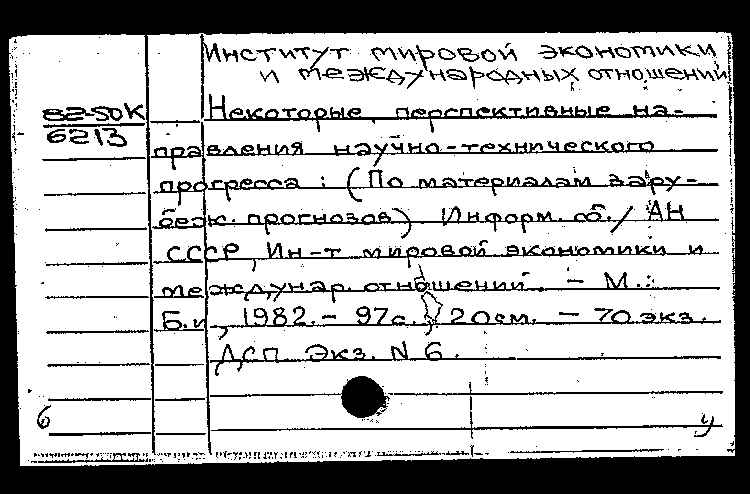 Институт мировой экономики
и международных отношений
82-50К
6213
Некоторые перспективные на-
правления научно-технического
прогресса : (По материалам зару-
беж. прогнозов). Информ. сб. / АН
СССР, Ин-т мировой экономики и
междунар. отношений. – М.:
Б.и., 1982. – 97с.; 20см. – 70 экз.
ДСП Экз. N 6.
6
у